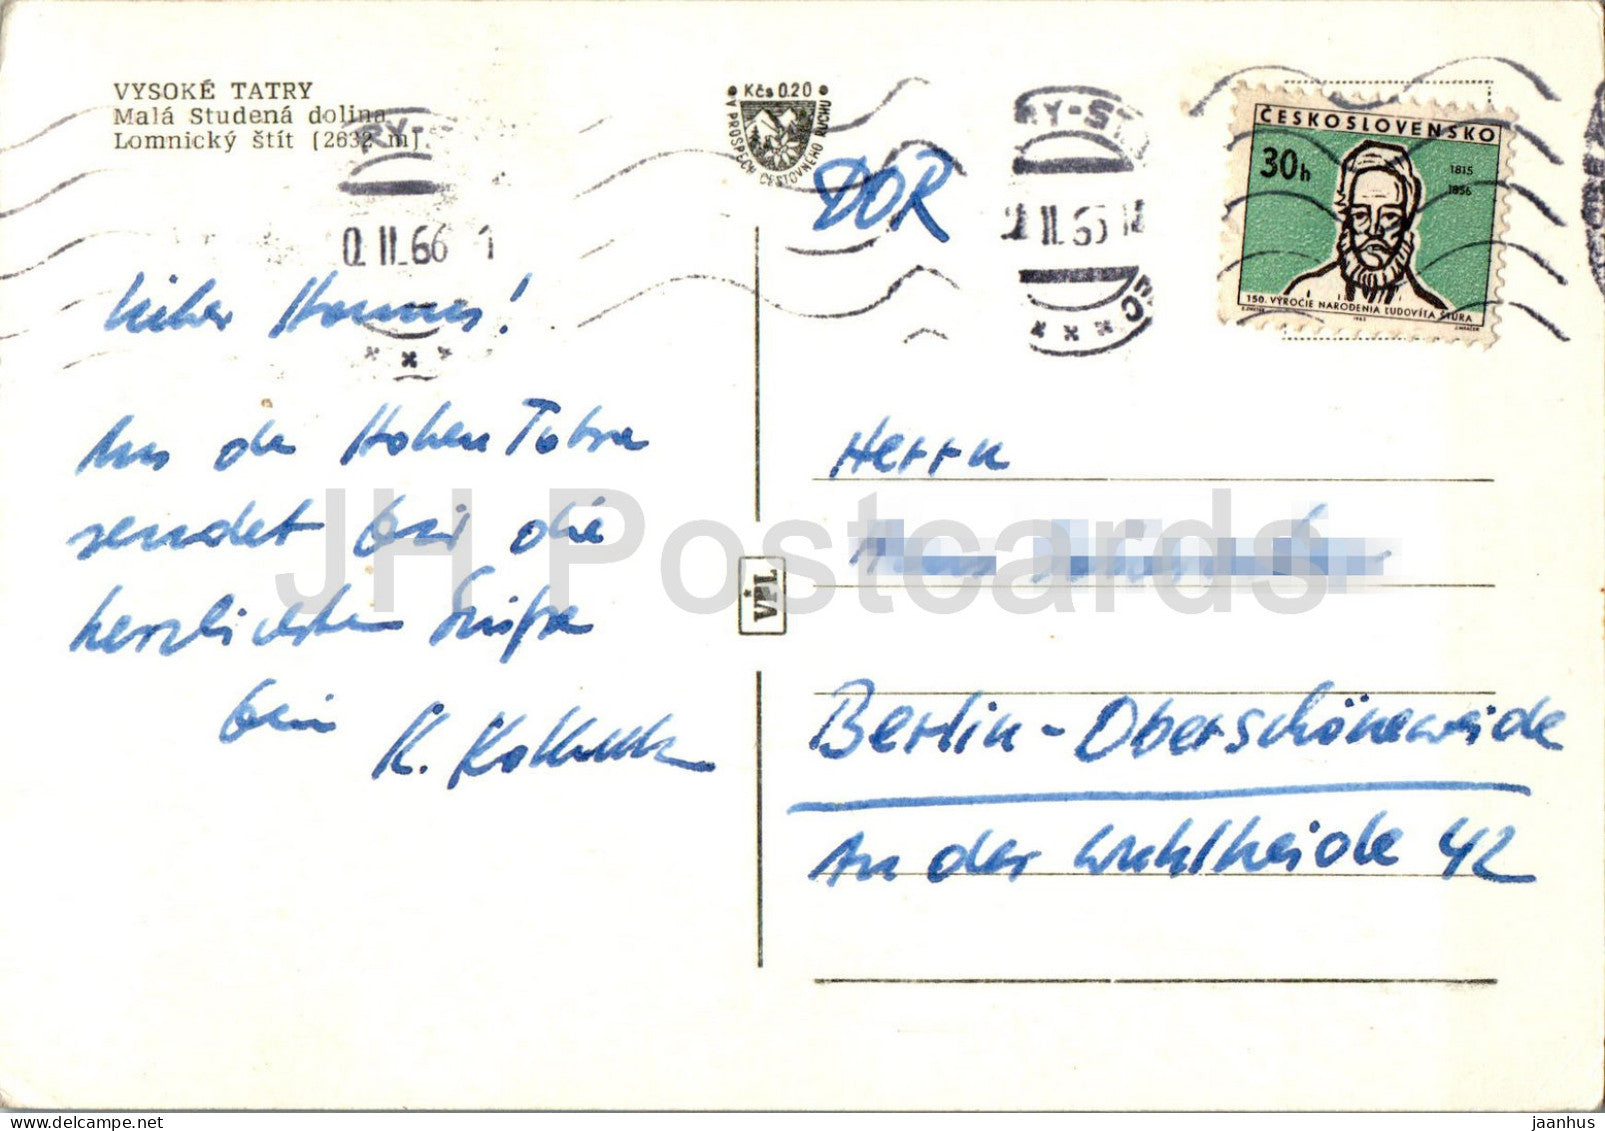 VYSOKÉ TATRY
Malá Studená dolina
Lomnický štít (2632 m).
Kčs 0.20
V PROSPECH CESTOVNÉHO RUCHU
DDR
ČESKOSLOVENSKO
30h
1815
1856
150. VÝROČIE NARODENIA ĽUDOVÍTA ŠTÚRA
II. 66
Lieber Hannes!
Aus der Hohen Tatra
sendet Dir die
herzlichsten Grüße
Dein
K.
VPL
Herrn
Berlin-Oberschöneweide
An der Wuhlheide 42
JH Postcards
jaanhus